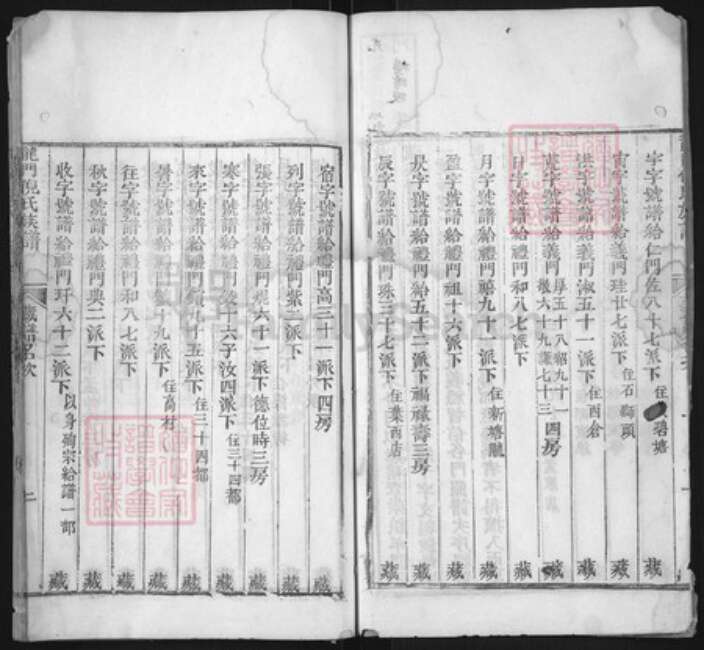 宇字號譜給仁門佐八十七派下住碧塘 藏
宙字號譜給義門珪廿七派下住石獅頭 藏
洪字號譜給義門淑五十一派下住西倉 藏
荒字號譜給義門學五十八昭九十一 謙七十三 四房 藏
日字號譜給禮門和八七派下 藏
月字號譜給禮門禧九十一派下住新塘壠 藏
盈字號譜給禮門祖十六派下 藏
昃字號譜給禮門紿五十二派下福祿壽三房 藏
辰字號譜給禮門珠三十七派下住葉西店 藏
宿字號譜給禮門高三十一派下四房 藏
列字號譜給禮門紫二派下 藏
張字號譜給禮門 六十一派下德位時三房 藏
寒字號譜給禮門 十六子汝四派下住三十四都 藏
來字號譜給禮門 九十五派下住三十四都 藏
暑字號譜給禮門 十九派下住高村 藏
往字號譜給禮門和八七派下 藏
秋字號譜給禮門典二派下 藏
收字號譜給禮門玕六十二派下以身殉宗給譜一部 藏
龍門倪氏族譜 藏譜名次